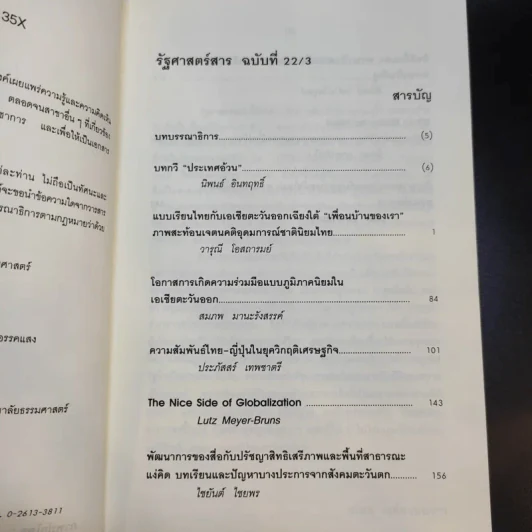 35X
งค์เผยแพร่ความรู้และความคิดเห็น
ตลอดจนสาขาอื่น ๆ ที่เกี่ยวข้อง
ชาการ และเพื่อให้เป็นเอกสาร
ละท่าน ไม่ถือเป็นทัศนะและ
จะขอนำข้อความใดจากวารสาร
รณาธิการตามกฎหมายว่าด้วย
ศาสตร์
อรรคแสง
าลัยธรรมศาสตร์
0-2613-3811
รัฐศาสตร์สาร ฉบับที่ 22/3
สารบัญ
บทบรรณาธิการ (5)
บทกวี "ประเทศอ้วน" (6)
นิพนธ์ อินทฤทธิ์
แบบเรียนไทยกับเอเชียตะวันออกเฉียงใต้ "เพื่อนบ้านของเรา"
ภาพสะท้อนเจตนคติอุดมการณ์ชาตินิยมไทย 1
วารุณี โอสถารมย์
โอกาสการเกิดความร่วมมือแบบภูมิภาคนิยมใน
เอเชียตะวันออก 84
สมภพ มานะรังสรรค์
ความสัมพันธ์ไทย-ญี่ปุ่นในยุควิกฤติเศรษฐกิจ 101
ประภัสสร์ เทพชาตรี
The Nice Side of Globalization 143
Lutz Meyer-Bruns
พัฒนาการของสื่อกับปรัชญาสิทธิเสรีภาพและพื้นที่สาธารณะ
แง่คิด บทเรียนและปัญหาบางประการจากสังคมตะวันตก 156
ไชยันต์ ไชยพร